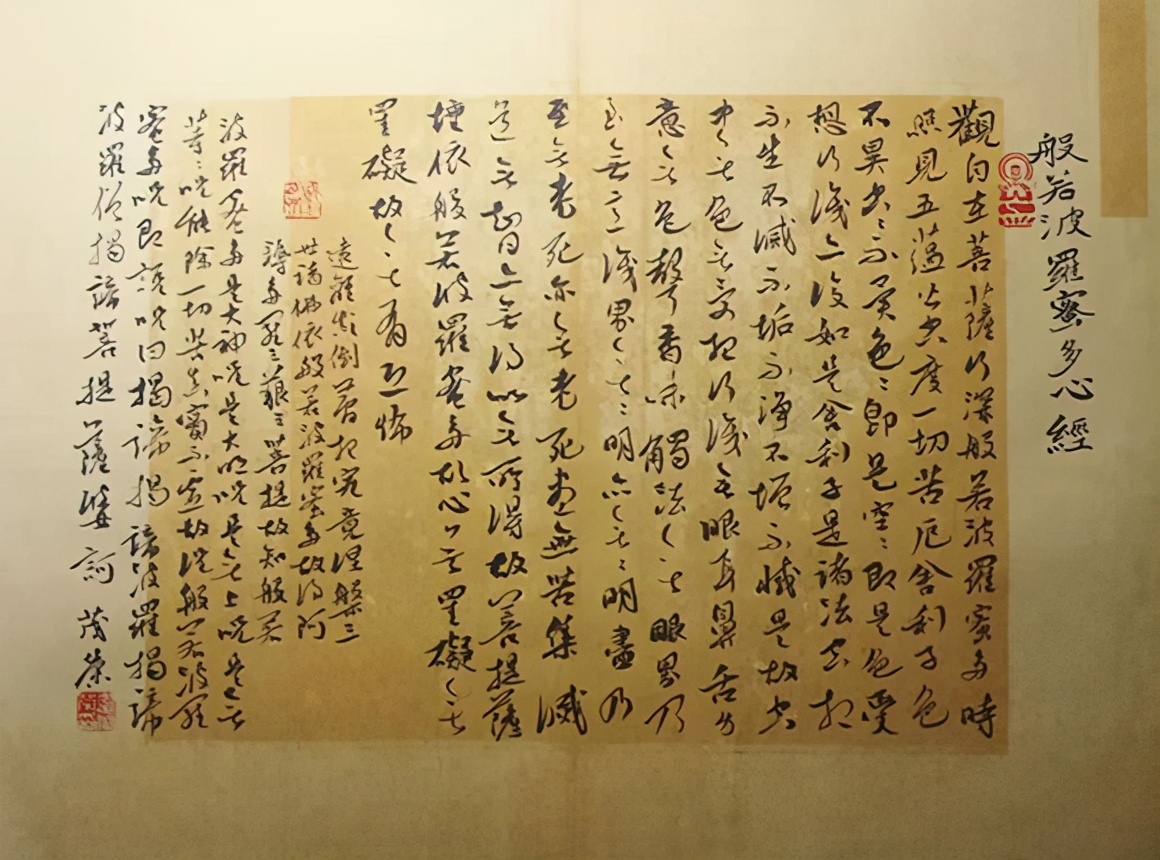 般若波羅蜜多心經
觀自在菩薩行深般若波羅蜜多時
照見五蘊皆空度一切苦厄舍利子色
不異空々不異色々即是空々即是色受
想行識亦復如是舍利子是諸法空相
不生不滅不垢不淨不增不減是故空
中無色無受想行識無眼耳鼻舌身
意無色聲香味觸法無眼界乃
至無意識界無々明亦無々明盡乃
至無老死亦無老死盡無苦集滅
道無智亦無得以無所得故菩提薩
埵依般若波羅蜜多故心無罣礙無
罣礙故無有恐怖
遠離顛倒夢想究竟涅槃三
世諸佛依般若波羅蜜多故得阿
耨多羅三藐三菩提故知般若
波羅蜜多是大神呪是大明呪是無上呪是無
等々呪能除一切苦真實不虛故說般若波羅
蜜多呪即說呪曰揭諦揭諦波羅揭諦
波羅僧揭諦菩提薩婆訶 茂榮